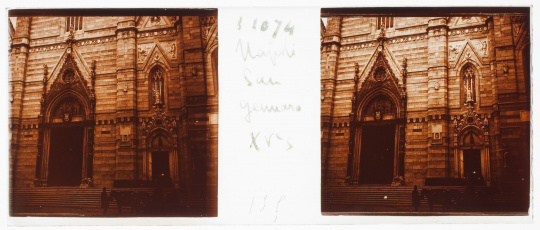 11074
Napoli
San
Gennaro
XVe s
155